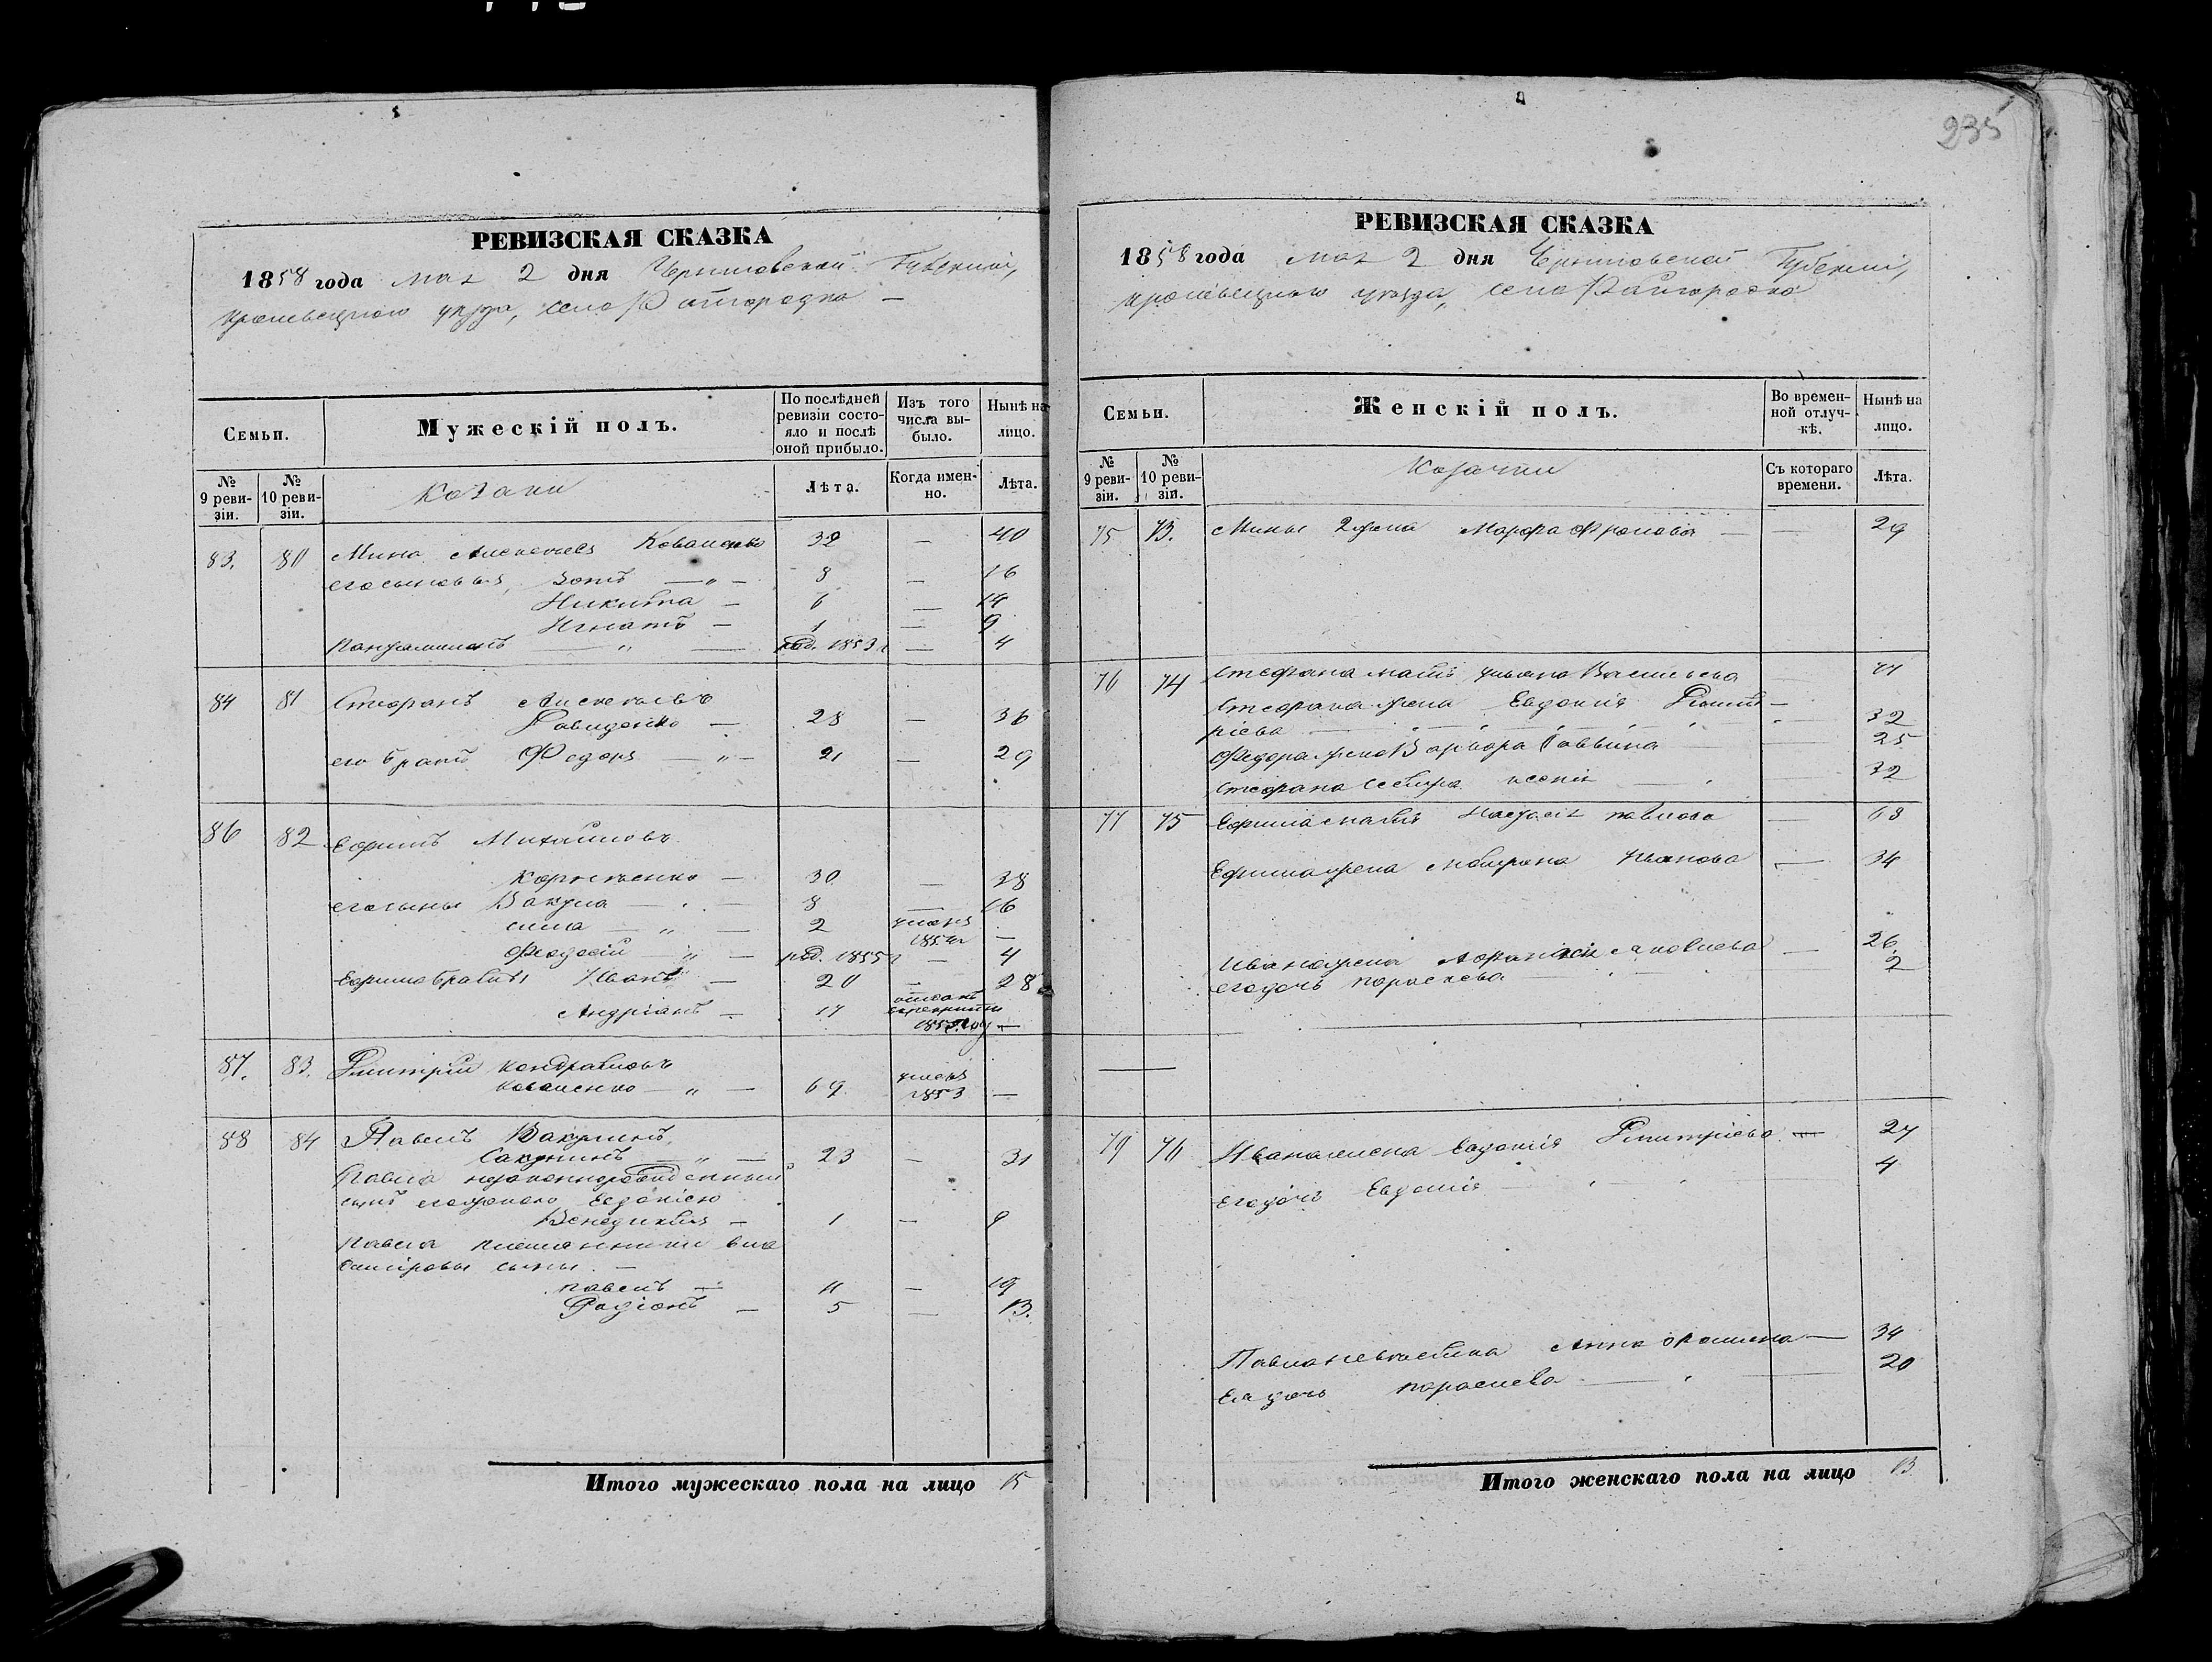 235
РЕВИЗСКАЯ СКАЗКА
1858 года мая 2 дня Черниговской Губерніи,
Кролевецкого уезда, село Райгородка —
Семьи.
Мужескій полъ.
По послѣдней ревизіи состояло и послѣ оной прибыло.
Изъ того числа выбыло.
Нынѣ на лицо.
№ 9 ревизіи.
№ 10 ревизіи.
Козаки
Лѣта.
Когда именно.
Лѣта.
83. 80 Мина Алексеевъ Коваленко 32 — 40
его сыновья, Зотъ — „ — 8 — 16
Никита — 6 — 14
Игнатъ — 1 — 9
Пантелимонъ — „ — род. 1853 г — 4
84 81 Стефанъ Алексеевъ
Давиденко — 28 — 36
его братъ Федоръ — „ — 21 — 29
86 82 Ефимъ Михайловъ
30 — 38
его сыны Вакула — „ — 8 — 16
2 —
Феодосій „ — род. 1855 г — 4
Ефима братья Иванъ — 20 — 28
Андріанъ — 17 —
87. 83. Дмитрій Кондратьевъ
Коваленко — „ — 69 умеръ 1853 —
88 84 Павелъ Вакулинъ
— „ — 23 — 31
Павла незаконнорожденный
сынъ его женою Евдокіею
Венедиктъ — 1 — 9
Павла племянники
сыны. —
Павелъ — 11 — 19
Радіонъ — 5 — 13.
Итого мужескаго пола на лицо 15
РЕВИЗСКАЯ СКАЗКА
1858 года мая 2 дня Черниговской Губерніи,
Кролевецкого уезда, село Райгородка
Семьи.
Женскій полъ.
Во временной отлучкѣ.
Нынѣ на лицо.
№ 9 ревизіи.
№ 10 ревизіи.
Козачки
Съ котораго времени.
Лѣта.
75 73. Мины 2 жена Марфа — — 29
76 74 Стефана мать Ульяна Васильева —
Стефана жена Евдокія Дмит—
ріева — „ — „ — 32
Федора жена Варвара Саввина — 25
Стефана сестра — „ — 32
77 75 Ефима мать Настасія Павлова — 63
Ефима жена Иванова — 34
Ивана жена Яковлева — 26.
его дочь Параскева „ 2
79 76 Евдокія Дмитріева — 27
его дочь Евдокія — „ — „ — 4
Павла невестка Анна — 34
Ея дочь Параскева — „ — 20
Итого женскаго пола на лицо 13.